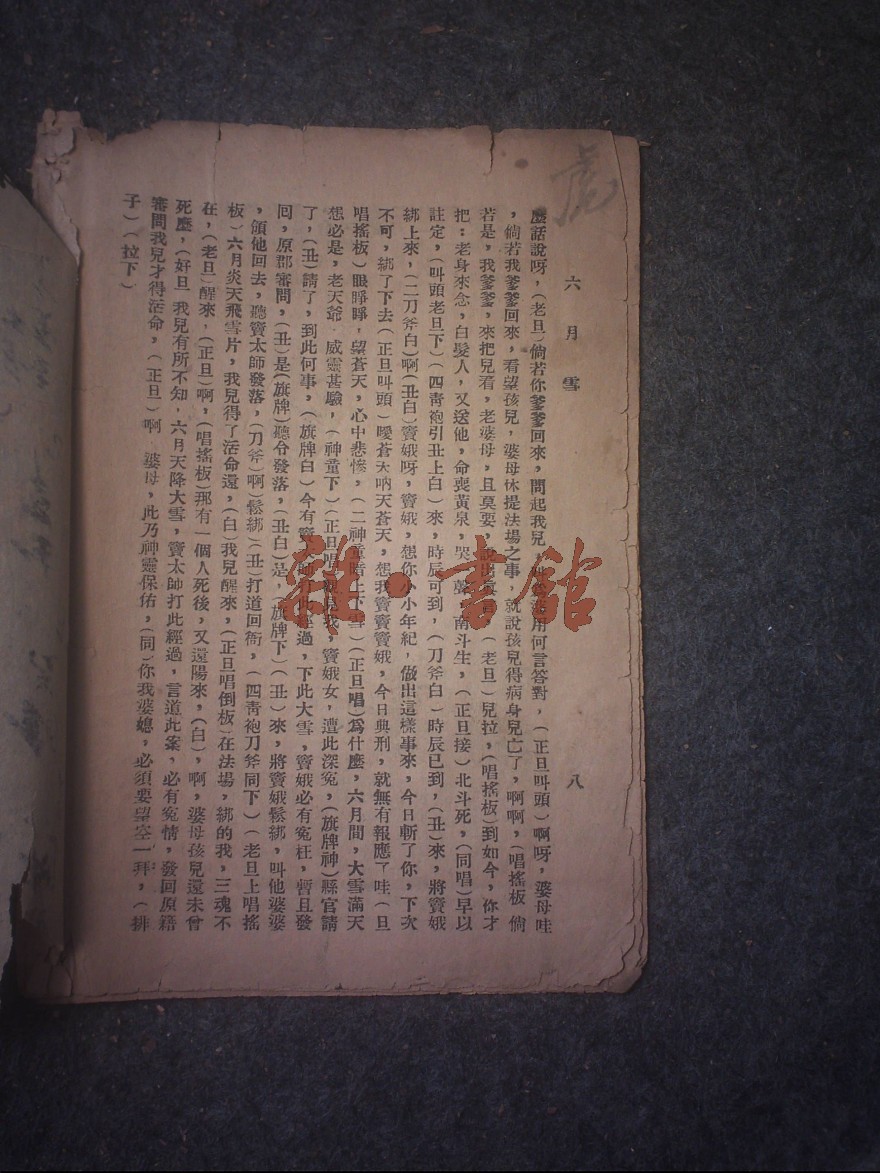 六月雪
八
麽話說呀，（老旦）倘若你爹爹回來，問起我兒，用何言答對，（正旦叫頭）啊呀，婆母哇
，倘若我爹爹回來，看望孩兒，婆母休提法場之事，就說孩兒得病身兒亡了，啊啊，（唱搖板）倘
若是，我爹爹，來把兒看，老婆母，且莫要，說出（老旦）兒拉，（唱搖板）到如今，你才
把：老身來念，白髮人，又送他，命喪黃泉，哭聲，南斗生，（正旦接）北斗死，（同唱）早以
註定，（叫頭老旦下）（四青袍引丑上白）來，時辰可到，（刀斧白）時辰已到，（丑）來，將竇娥
綁上來，（二刀斧白）啊（丑白）竇娥呀，竇娥，想你小小年紀，做出這樣事來，今日斬了你，下次
不可，綁了下去（正旦叫頭）噯蒼天吶天蒼天，想我竇竇竇娥，今日典刑，就無有報應了哇（旦
唱搖板）眼睜睜，望蒼天，心中悲慘，（二神童暗上下雪）（正旦唱）為什麽，六月間，大雪滿天
想必是，老天爺 威靈甚驗，（神童下）（正旦唱）我，竇娥女，遭此深冤，（旗牌神）縣官請
了，（丑）請了，到此何事，（旗牌白）今有竇太師打此經過，下此大雪，竇娥必有冤枉，暫且發
回，原郡審問，（丑）是（旗牌）聽令發落，（丑白）是，（旗牌下）（丑）來，將竇娥鬆綁，叫他婆婆
，領他回去，聽竇太師發落，（刀斧）啊）鬆綁（丑）打道回衙，（四青袍刀斧同下）（老旦上唱搖
板）六月炎天飛雪片，我兒得了活命還，（白）我兒醒來，（正旦唱倒板）在法場，綁的我，三魂不
在，（老旦）醒來，（正旦）啊，（唱搖板）那有一個人死後，又還陽來，（白），啊，婆母孩兒還未曾
死麽，（好旦 我兒有所不知，六月天降大雪，竇太師打此經過，言道此案，必有冤情，發回原籍
審問我兒才得活命，（正旦）啊 婆母，此乃神靈保佑，（同）你我婆媳，必須要望空一拜，（排
子）（拉下）
雜·書館